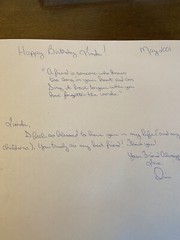 Happy Birthday Linda!
"A friend is someone who knows
the song in your heart and can
sing it back to you when you
have forgotten the words."
I feel so blessed to have you in my life (and my
children's). You truly are my best friend! Thank you!
Your Friend Always,
Love